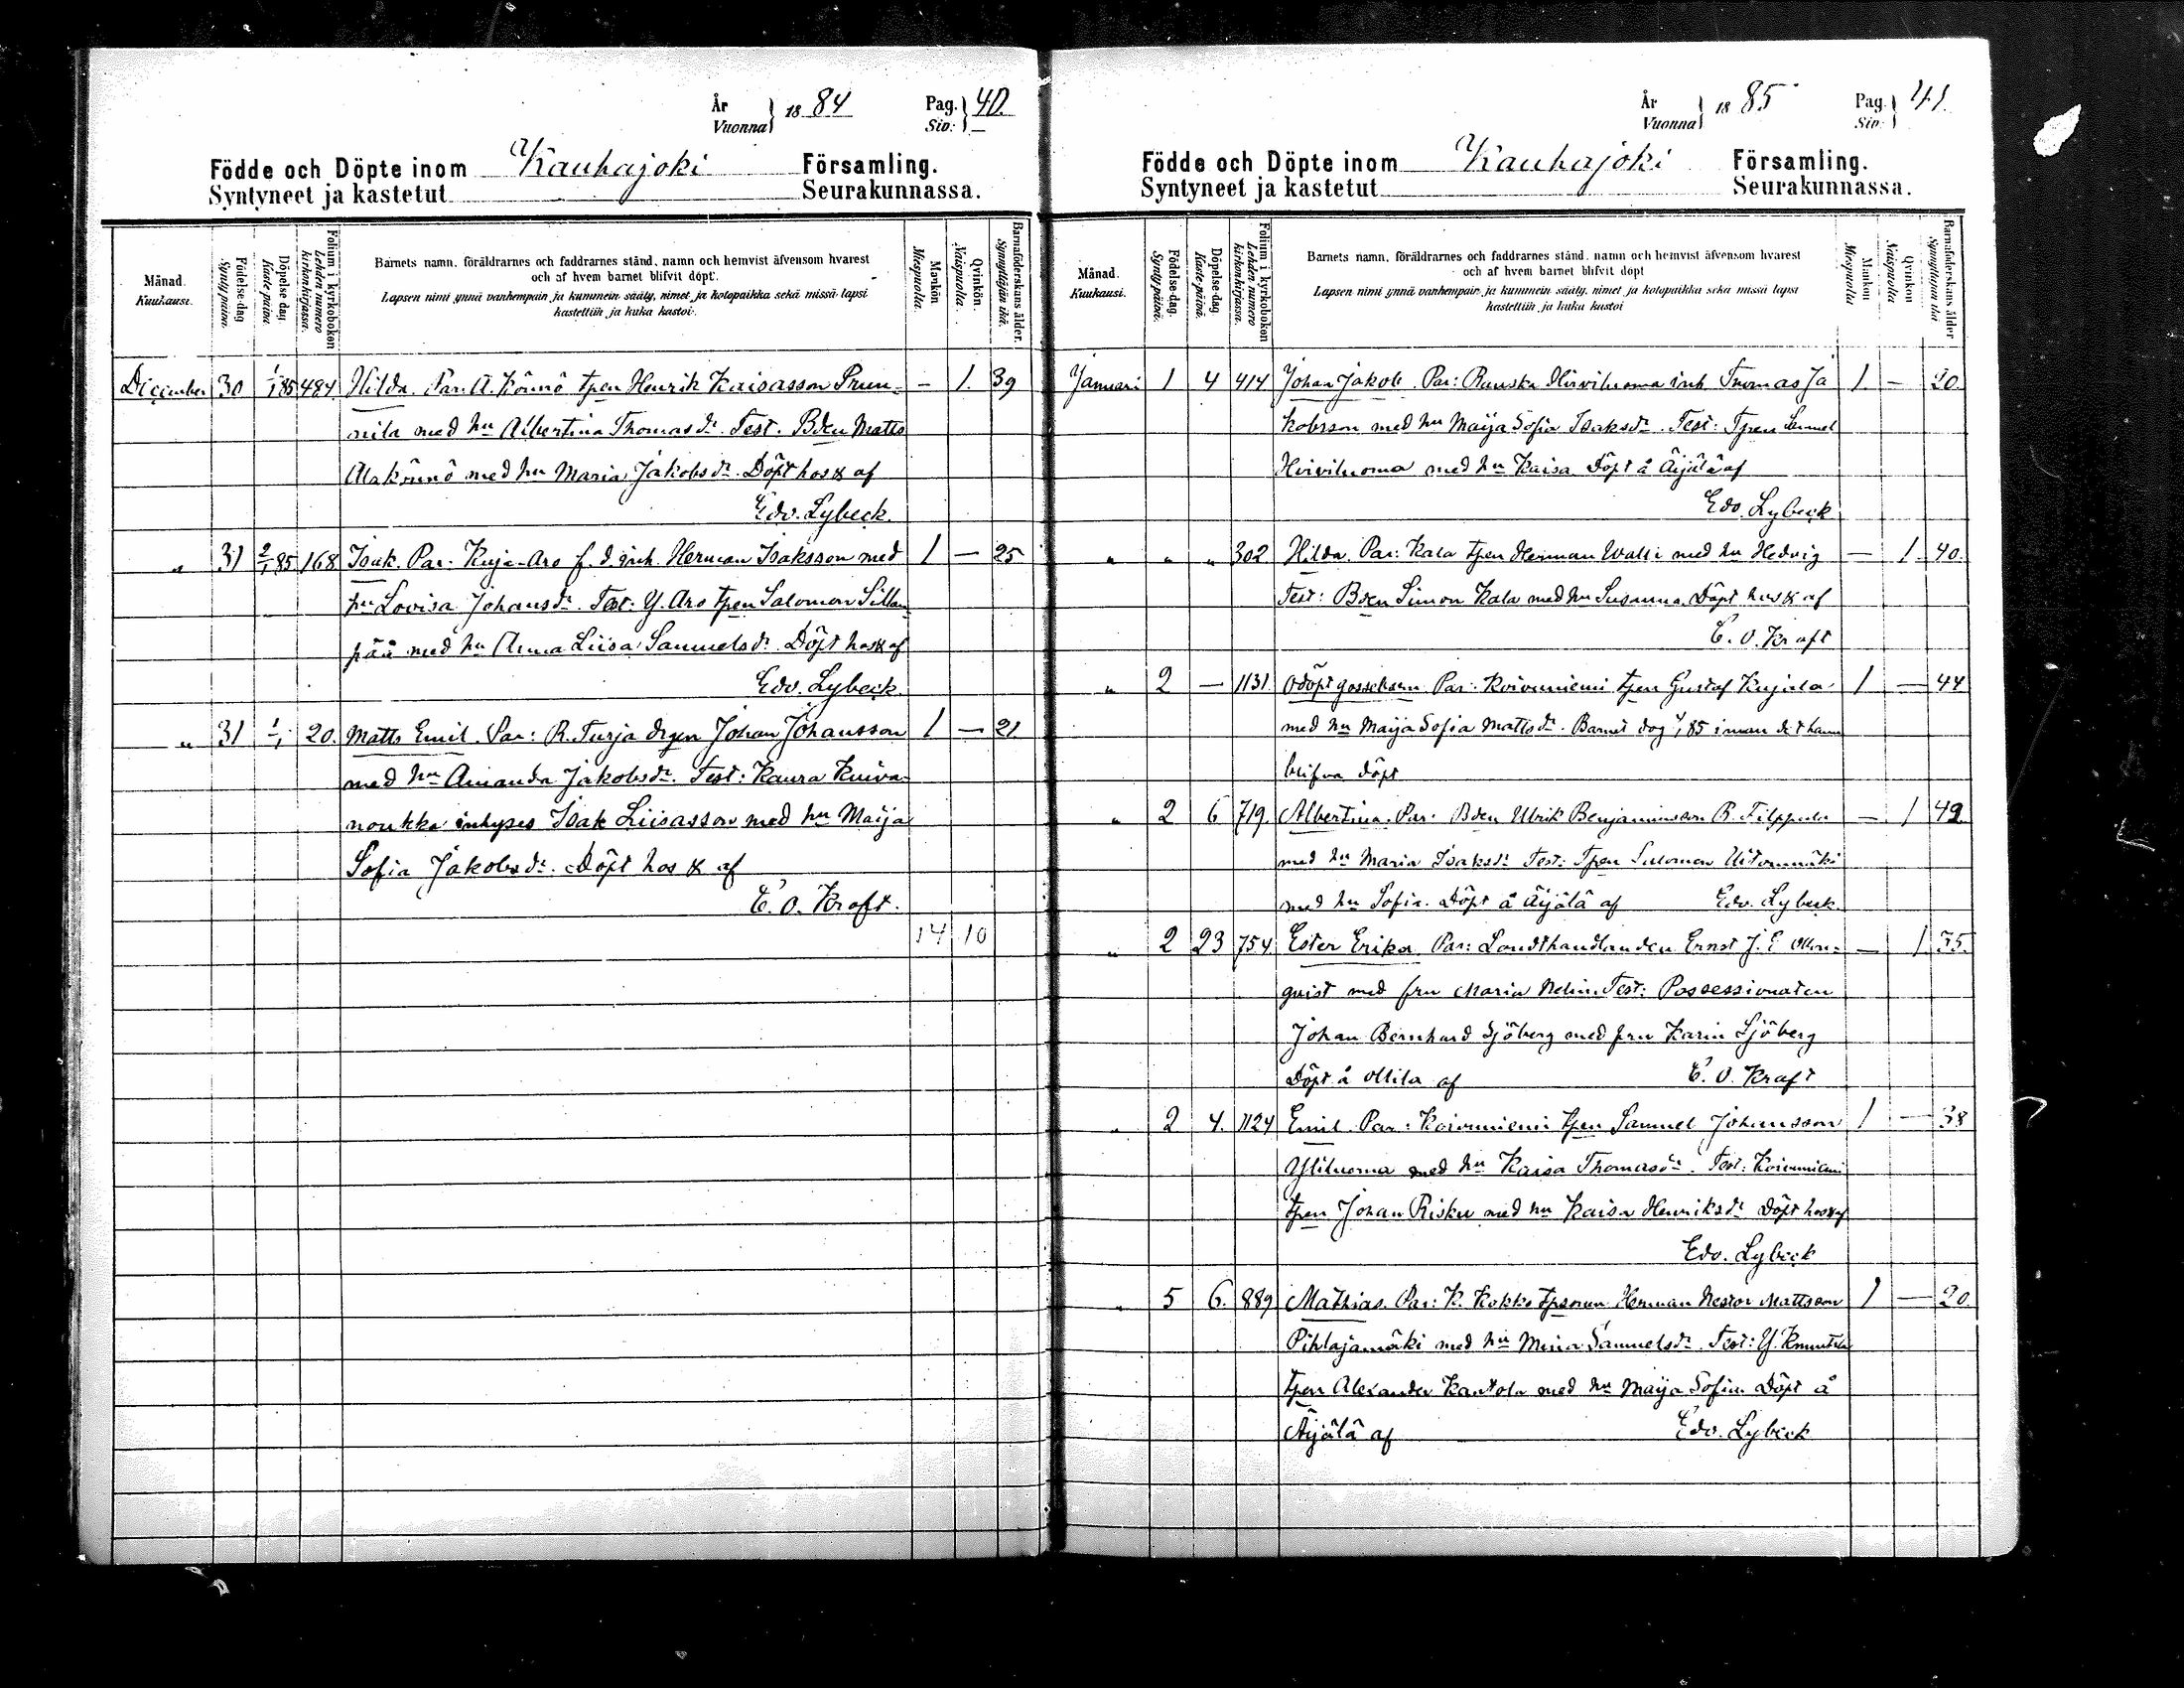 År
Vuonna
1884
Pag. 40.
Siv:
Födde och Döpte inom Kauhajoki Församling.
Syntyneet ja kastetut Seurakunnassa.
Månad.
Kuukausi.
Födelse-dag
Synty päivä.
Döpelse dag.
Kaste-päivä
Folium i kyrkoboken
Lehden numero
kirkonkirjassa.
Barnets namn, föräldrarnes och faddrarnes stånd, namn och hemvist äfvensom hvarest
och af hvem barnet blifvit döpt.
Lapsen nimi ynnä vanhempain ja kummein sääty, nimet ja kotopaikka sekä missä lapsi
kastettiin ja kuka kastoi.
Mankön
Miespuolia.
Qvinkön.
Naispuolia.
Barnaföderskans ålder.
Synnyttäjän ikä.
December 30 1/1 85 484 Hilda. Par. A. Könnö tpen Henrik Kaisasson Prun- — 1. 39
nila med hu Albertina Thomasdr. Test. Bden Matts
Alakönnö med hu Maria Jakobsdr. Döpt hos & af
Edv. Lybeck.
" 31 2/1 85 168 Isak. Par. Kuja-Aro f. d. inh. Herman Isaksson med 1 — 25
hu Lovisa Johansdr. Test: Y. Aro tpen Salomon Sillan-
pää med hu Anna Liisa Samuelsdr. Döpt hos & af
Edv. Lybeck.
" 31 1/1 20. Matts Emil. Par: R. Turja drgen Johan Johansson 1 — 21
med hu Amanda Jakobsdr. Test: Kaura Kuiva-
noukka inhyses Isak Liisasson med hu Maija
Sofia Jakobsdr. Döpt hos & af
E. O. Kraft.
14 10
År
Vuonna
1885
Pag. 41.
Siv:
Födde och Döpte inom Kauhajoki Församling.
Syntyneet ja kastetut Seurakunnassa.
Månad.
Kuukausi.
Födelse-dag.
Synty-päivä.
Döpelse-dag
Kaste-päivä.
Folium i kyrkoboken
Lehden numero
kirkonkirjassa.
Barnets namn, föräldrarnes och faddrarnes stånd, namn och hemvist äfvensom hvarest
och af hvem barnet blifvit döpt
Lapsen nimi ynnä vanhempain ja kummein sääty, nimet ja kotopaikka sekä missä lapsi
kastettiin ja kuka kastoi
Mankön
Miespuolia
Qvinkön
Naispuolia
Barnaföderskans ålder
Synnyttäjän ikä
Januari 1 4 414 Johan Jakob. Par: Ranska Hirviluoma inh. Tuomas Ja 1. — 20.
kobsson med hu Maija Sofia Isaksdr. Test: Tpen Samuel
Hirviluoma med hu Kaisa Döpt å Äijälä af
Edv. Lybeck
" " " 302 Hilda. Par: Kala tpen Herman Walli med hu Hedvig — 1. 40.
Test: Bden Simon Kala med hu Susanna. Döpt hos & af
E. O. Kraft
" 2 — 1131 Odöpt gossebarn Par: Koivuniemi tpen Gustaf Kujala 1 — 44
med hu Maija Sofia Mattsdr. Barnet dog 4/1 85 innan det hann
blifva döpt
" 2 6 719. Albertina. Par: Bden Ulrik Benjaminsson R. Filppula — 1 42
med hu Maria Isaksdr Test: Tpen Salomon
med hu Sofia. Döpt å Äijälä af Edv. Lybeck.
" 2 23 754. Ester Erika. Par: Landthandlanden Ernst J. E — 1. 35.
qvist med fru Maria Test: Possessionaten
Johan Bernhard Sjöberg med fru Karin Sjöberg
Döpt å af E. O. Kraft
" 2 4. 1124 Emil Par: Koivuniemi tpen Samuel Johansson 1 — 38
Yliluoma med hu Kaisa Thomasdr. Test: Koivuniemi
tpen Johan Risku med hu Kaisa Henriksdr Döpt hos & af
Edv. Lybeck
" 5 6. 889 Mathias. Par: K. Kokko tpsonen Herman Nestor Mattsson 1 — 20
Pihlajamäki med hu Miina Samuelsdr. Test: Y. Knuutila
tpen Alexander Kantola med hu Maija Sofia. Döpt å
Äijälä af Edv. Lybeck